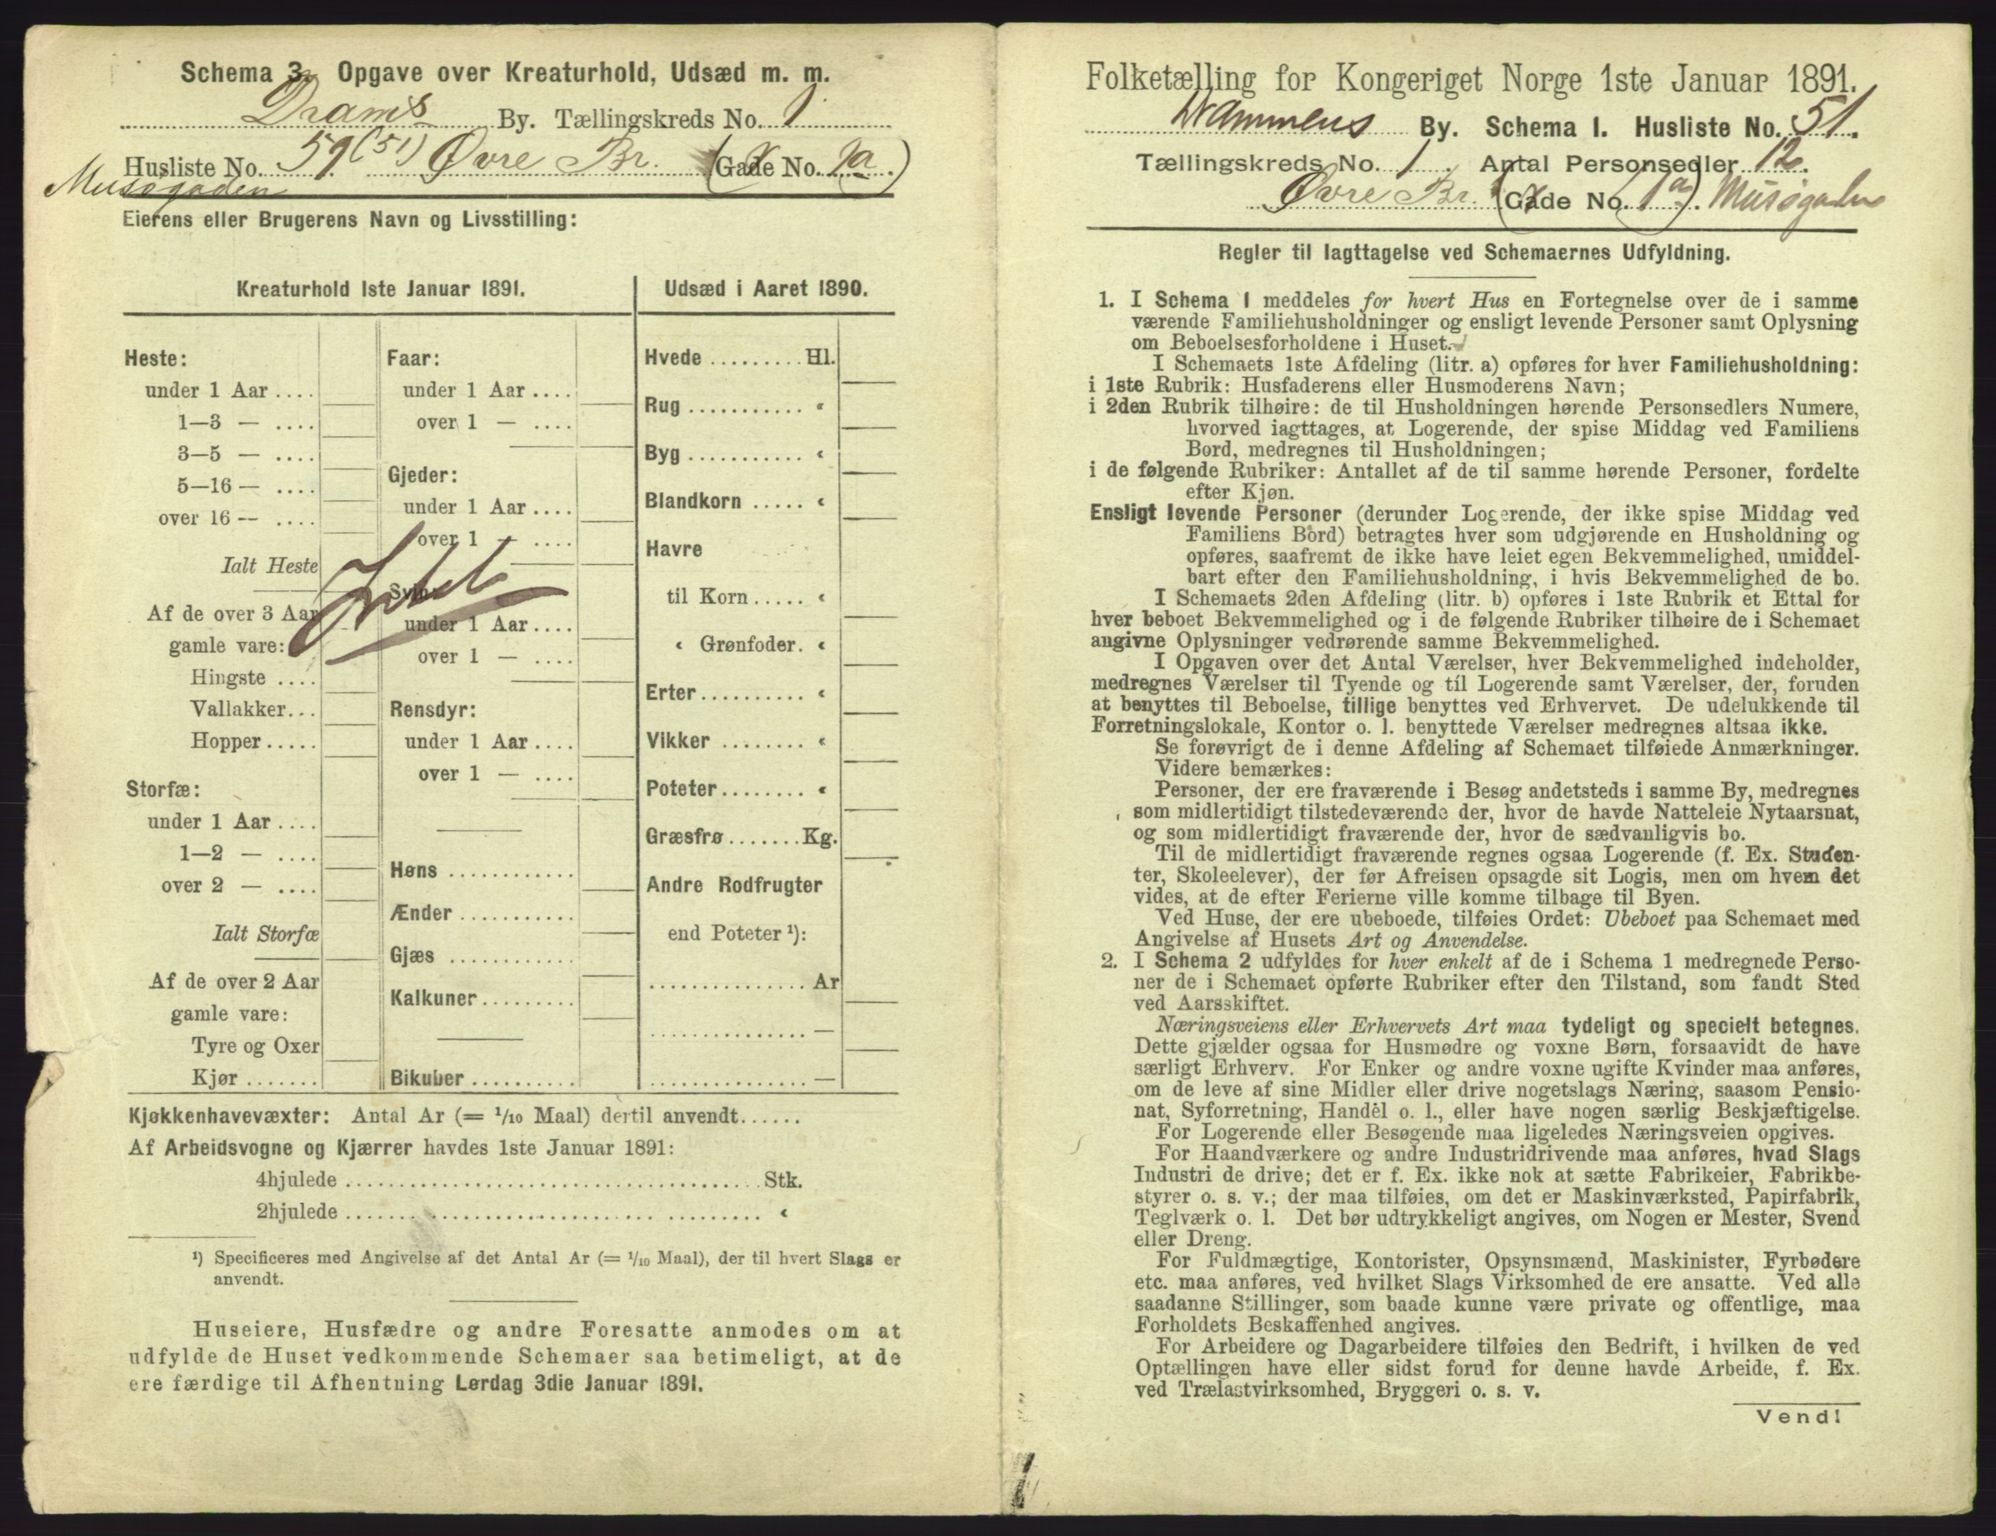 Schema 3. Opgave over Kreaturhold, Udsæd m. m.
Drams By. Tællingskreds No. 1
Husliste No. 59 (51) Øvre Br. (Gade No. 1a)
Musøgaden
Eierens eller Brugerens Navn og Livsstilling:
Kreaturhold 1ste Januar 1891.
Heste:
under 1 Aar ....
1—3 — ....
3—5 — ....
5—16 — ....
over 16 — ....
Ialt Heste
Af de over 3 Aar
gamle vare:
Hingste ....
Vallakker...
Hopper.....
Storfæ:
under 1 Aar ....
1—2 — ....
over 2 — ....
Ialt Storfæ
Af de over 2 Aar
gamle vare:
Tyre og Oxer
Kjør .......
Faar:
under 1 Aar ....
over 1 — ....
Gjeder:
under 1 Aar ....
over 1 — ....
Intet
Svin:
under 1 Aar....
over 1 — ....
Rensdyr:
under 1 Aar ....
over 1 — ....
Høns ............
Ænder ...........
Gjæs ............
Kalkuner.........
Bikuber ..........
Udsæd i Aaret 1890.
Hvede ......... Hl.
Rug ........... «
Byg ........... «
Blandkorn ..... «
Havre
til Korn ..... «
« Grønfoder. «
Erter.......... «
Vikker ........ «
Poteter........ «
Græsfrø.......Kg.
Andre Rodfrugter
end Poteter ¹):
............... Ar
............... —
............... —
Kjøkkenhavevæxter: Antal Ar (= 1/10 Maal) dertil anvendt......
Af Arbeidsvogne og Kjærrer havdes 1ste Januar 1891:
4hjulede ........................................ Stk.
2hjulede ........................................ «
¹) Specificeres med Angivelse af det Antal Ar (= 1/10 Maal), der til hvert Slags er
anvendt.
Huseiere, Husfædre og andre Foresatte anmodes om at
udfylde de Huset vedkommende Schemaer saa betimeligt, at de
ere færdige til Afhentning Lørdag 3die Januar 1891.
Folketælling for Kongeriget Norge 1ste Januar 1891.
Drammens By. Schema 1. Husliste No. 51.
Tællingskreds No. 1. Antal Personsedler 12.
Øvre Br. (Gade No. 1a). Musøgaden
Regler til Iagttagelse ved Schemaernes Udfyldning.
1. I Schema 1 meddeles for hvert Hus en Fortegnelse over de i samme
værende Familiehusholdninger og ensligt levende Personer samt Oplysning
om Beboelsesforholdene i Huset.
I Schemaets 1ste Afdeling (litr. a) opføres for hver Familiehusholdning:
i 1ste Rubrik: Husfaderens eller Husmoderens Navn;
i 2den Rubrik tilhøire: de til Husholdningen hørende Personsedlers Numere,
hvorved iagttages, at Logerende, der spise Middag ved Familiens
Bord, medregnes til Husholdningen;
i de følgende Rubriker: Antallet af de til samme hørende Personer, fordelte
efter Kjøn.
Ensligt levende Personer (derunder Logerende, der ikke spise Middag ved
Familiens Bord) betragtes hver som udgjørende en Husholdning og
opføres, saafremt de ikke have leiet egen Bekvemmelighed, umiddel-
bart efter den Familiehusholdning, i hvis Bekvemmelighed de bo.
I Schemaets 2den Afdeling (litr. b) opføres i 1ste Rubrik et Ettal for
hver beboet Bekvemmelighed og i de følgende Rubriker tilhøire de i Schemaet
angivne Oplysninger vedrørende samme Bekvemmelighed.
I Opgaven over det Antal Værelser, hver Bekvemmelighed indeholder,
medregnes Værelser til Tyende og til Logerende samt Værelser, der, foruden
at benyttes til Beboelse, tillige benyttes ved Erhvervet. De udelukkende til
Forretningslokale, Kontor o. l. benyttede Værelser medregnes altsaa ikke.
Se forøvrigt de i denne Afdeling af Schemaet tilføiede Anmærkninger.
Videre bemærkes:
Personer, der ere fraværende i Besøg andetsteds i samme By, medregnes
som midlertidigt tilstedeværende der, hvor de havde Natteleie Nytaarsnat,
og som midlertidigt fraværende der, hvor de sædvanligvis bo.
Til de midlertidigt fraværende regnes ogsaa Logerende (f. Ex. Studen-
ter, Skoleelever), der før Afreisen opsagde sit Logis, men om hvem det
vides, at de efter Ferierne ville komme tilbage til Byen.
Ved Huse, der ere ubeboede, tilføies Ordet: Ubeboet paa Schemaet med
Angivelse af Husets Art og Anvendelse.
2. I Schema 2 udfyldes for hver enkelt af de i Schema 1 medregnede Perso-
ner de i Schemaet opførte Rubriker efter den Tilstand, som fandt Sted
ved Aarsskiftet.
Næringsveiens eller Erhvervets Art maa tydeligt og specielt betegnes.
Dette gjælder ogsaa for Husmødre og voxne Børn, forsaavidt de have
særligt Erhverv. For Enker og andre voxne ugifte Kvinder maa anføres,
om de leve af sine Midler eller drive nogetslags Næring, saasom Pensio-
nat, Syforretning, Handel o. l., eller have nogen særlig Beskjæftigelse.
For Logerende eller Besøgende maa ligeledes Næringsveien opgives.
For Haandværkere og andre Industridrivende maa anføres, hvad Slags
Industri de drive; det er f. Ex. ikke nok at sætte Fabrikeier, Fabrikbe-
styrer o. s. v.; der maa tilføies, om det er Maskinværksted, Papirfabrik,
Teglværk o. l. Det bør udtrykkeligt angives, om Nogen er Mester, Svend
eller Dreng.
For Fuldmægtige, Kontorister, Opsynsmænd, Maskinister, Fyrbødere
etc. maa anføres, ved hvilket Slags Virksomhed de ere ansatte. Ved alle
saadanne Stillinger, som baade kunne være private og offentlige, maa
Forholdets Beskaffenhed angives.
For Arbeidere og Dagarbeidere tilføies den Bedrift, i hvilken de ved
Optællingen have eller sidst forud for denne havde Arbeide, f. Ex.
ved Trælastvirksomhed, Bryggeri o. s. v.
Vend!